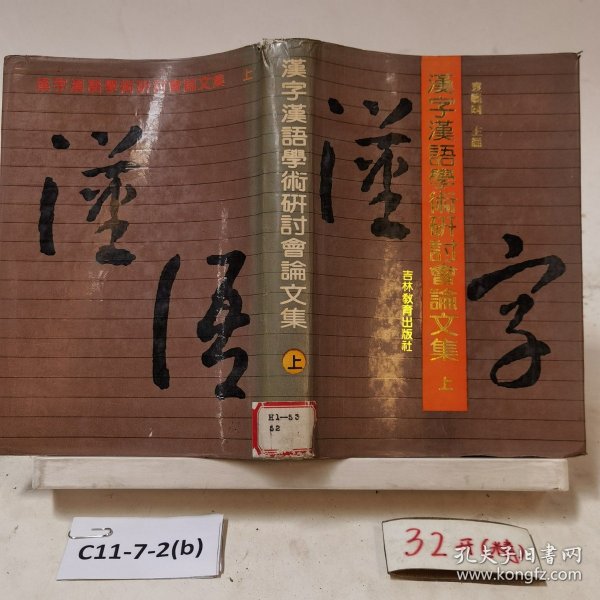 漢字漢語學術研討會論文集 上
漢
语
漢字漢語學術研討會論文集
上
H1—53
52
漢
字
漢字漢語學術研討會論文集 上
主編
吉林教育出版社
C11-7-2(b)
32元
孔夫子旧书网
www.kongfz.com